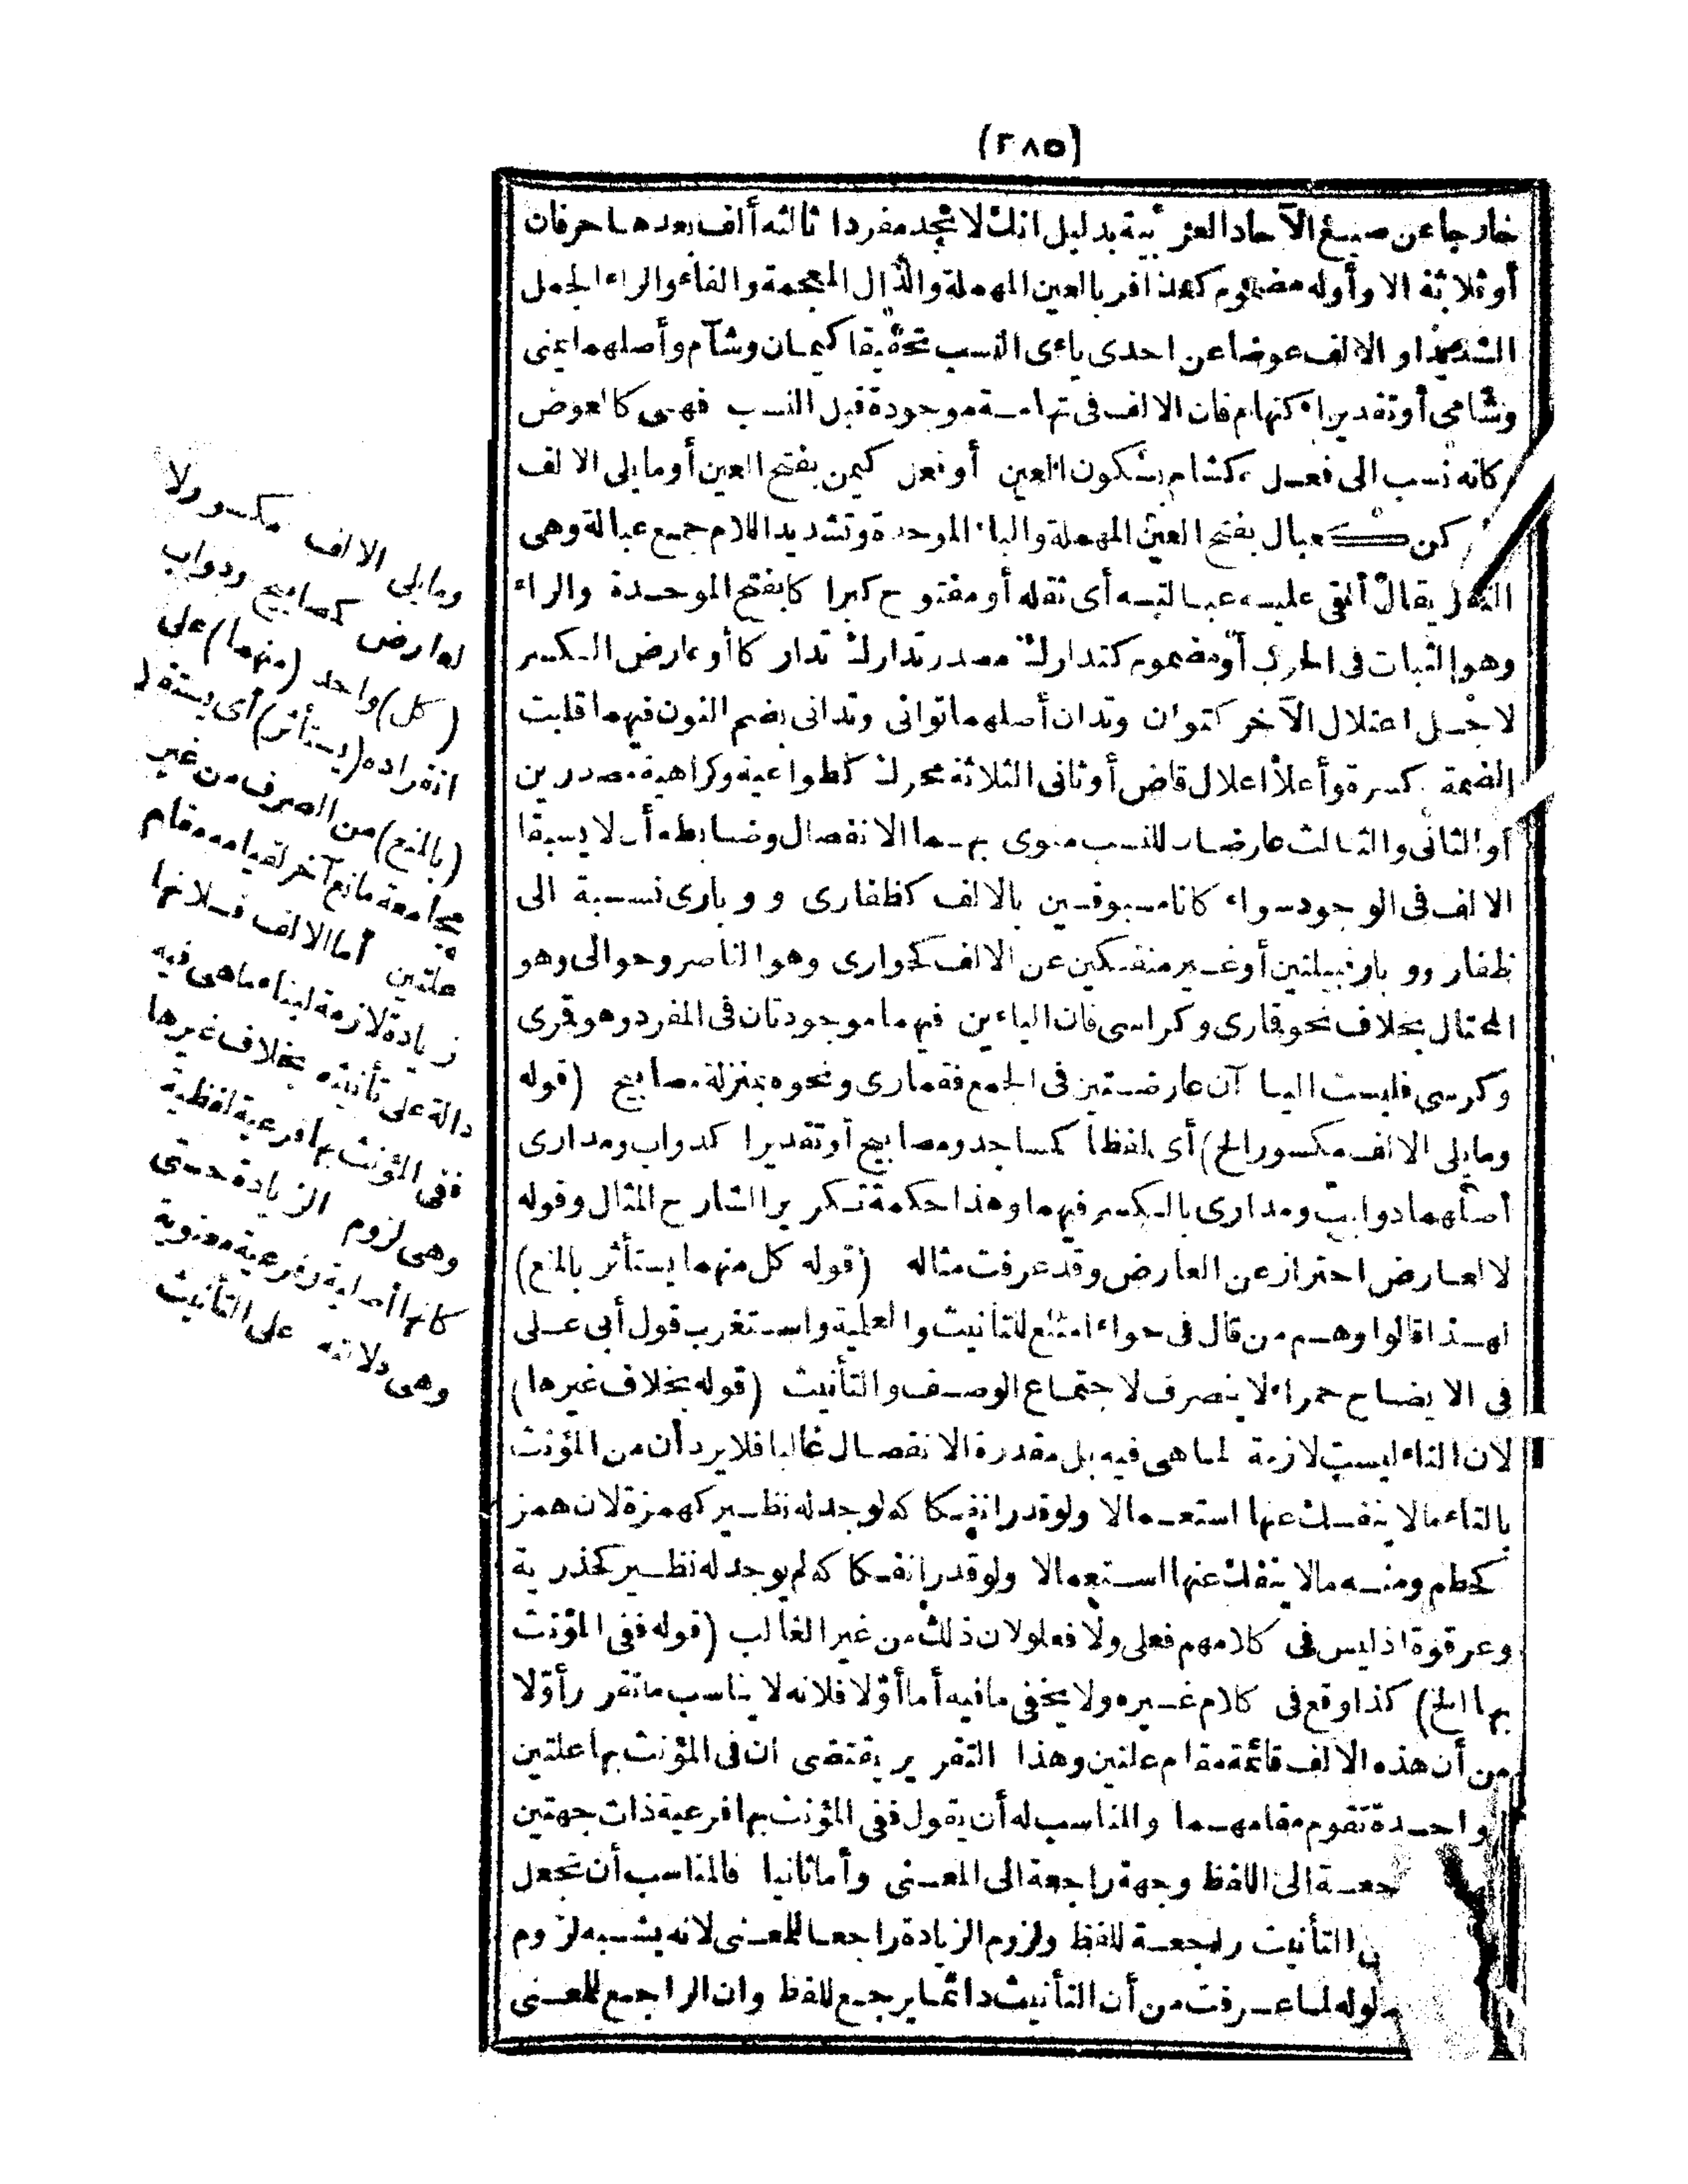 (٢٨٥)
خارجا عن صيغ الآحاد العربية بدليل انك لا تجد مفردا ثالثه ألف بعدها حرفان
أو ثلاثة الا وأوله مضموم كعذافر بالعين المهملة والذال المعجمة والفاء والراء الجمل
الشديد او الالف عوضا عن احدى ياءى النسب تحقيقا كيمان وشآم وأصلهما يمنى
وشامى أو تقديرا كتهام فان الالف فى تهامة موجودة قبل النسب فهى كالعوض
كانه نسب الى فعل كشام بسكون العين أو فعل كيمن بفتح العين أو ما يلى الالف
كن كعبال بفتح العين المهملة والباء الموحدة وتشديد اللام جمع عبالة وهى
الثقل يقال ألقى عليه عبالته أى ثقله أو مفتوح كبرا كا بفتح الموحدة والراء
وهو الثبات فى الحرب أو مضموم كتدارك مصدر تدارك تدار كا أو عارض الكسر
لاجل اعتلال الآخر كتوان وتدان أصلهما توانى وتدانى بضم النون فيهما قلبت
الضمة كسرة وأعلا اعلال قاض أو ثانى الثلاثة محرك كطواعية وكراهية مصدرين
أو الثانى والثالث عارضان للنسب منوى بهما الانفصال وضابطه أن لا يسبقا
الالف فى الوجود سواء كانا مسبوقين بالالف كظفارى ووبارى نسبة الى
ظفار ووبار قبيلتين أو غير منفكين عن الالف كحوارى وهو الناصر وحوالى وهو
المحتال بخلاف نحو قمارى وكراسى فان الياءين فيهما موجودتان فى المفرد وهو قمرى
وكرسى فليست اليا آن عارضتين فى الجمع فقمارى ونحوه بمنزلة مصابيح (قوله
وما يلى الالف مكسور الخ) أى لفظا كمساجد ومصابيح أو تقديرا كدواب ومدارى
أصلهما دوابب ومدارى بالكسر فيهما وهذا حكمة تكرير الشارح المثال وقوله
لا لعارض احتراز عن العارض وقد عرفت مثاله (قوله كل منهما يستأثر بالمنع)
لهذا قالوا وهم من قال فى حواء امتنع للتأنيث والعلمية واستغرب قول أبى على
فى الايضاح حمراء لا ينصرف لاجتماع الوصف والتأنيث (قوله بخلاف غيرها)
لان التاء ليست لازمة لما هى فيه بل مقدرة الانفصال غالبا فلا يرد أن من المؤنث
بالتاء مالا ينفك عنها استعمالا ولو قدر انفكا كه لوجد له نظير كهمزة لان همز
كحطم ومنه مالا ينفك عنها استعمالا ولو قدر انفكا كه لم يوجد له نظير كحذرية
وعرقوة اذ ليس فى كلامهم فعلى ولا فعلو لان ذلك من غير الغالب (قوله ففى المؤنث
بها الخ) كذا وقع فى كلام غيره ولا يخفى ما فيه أما أولا فلانه لا يناسب ما تقرر أولا
من أن هذه الالف قائمة مقام علتين وهذا التقرير يقتضى ان فى المؤنث بها علتين
واحدة تقوم مقامهما والمناسب له أن يقول ففى المؤنث بها فرعية ذات جهتين
جعة الى اللفظ وجهة راجعة الى المعنى وأما ثانيا فالمناسب أن تجعل
التأنيث راجعة للفظ ولزوم الزيادة راجعا للمعنى لانه يشبه لزوم
لوله لما عرفت من أن التأنيث دائما يرجع للفظ وان الراجع للمعنى
وما يلى الالف مكسور لا
لعارض كمصابيح ودواب
(كل) واحد (منهما) على
انفراده (يستأثر) أى يستقل
(بالمنع) من الصرف من غير
مجامعة مانع آخر لقيامه مقام
علتين أما الالف فلانها
زيادة لازمة لبناء ما هى فيه
دالة على تأنيثه بخلاف غيرها
ففى المؤنث بها فرعية لفظية
وهى لزوم الزيادة حتى
كانها أصلية وفرعية معنوية
وهى دلالته على التأنيث